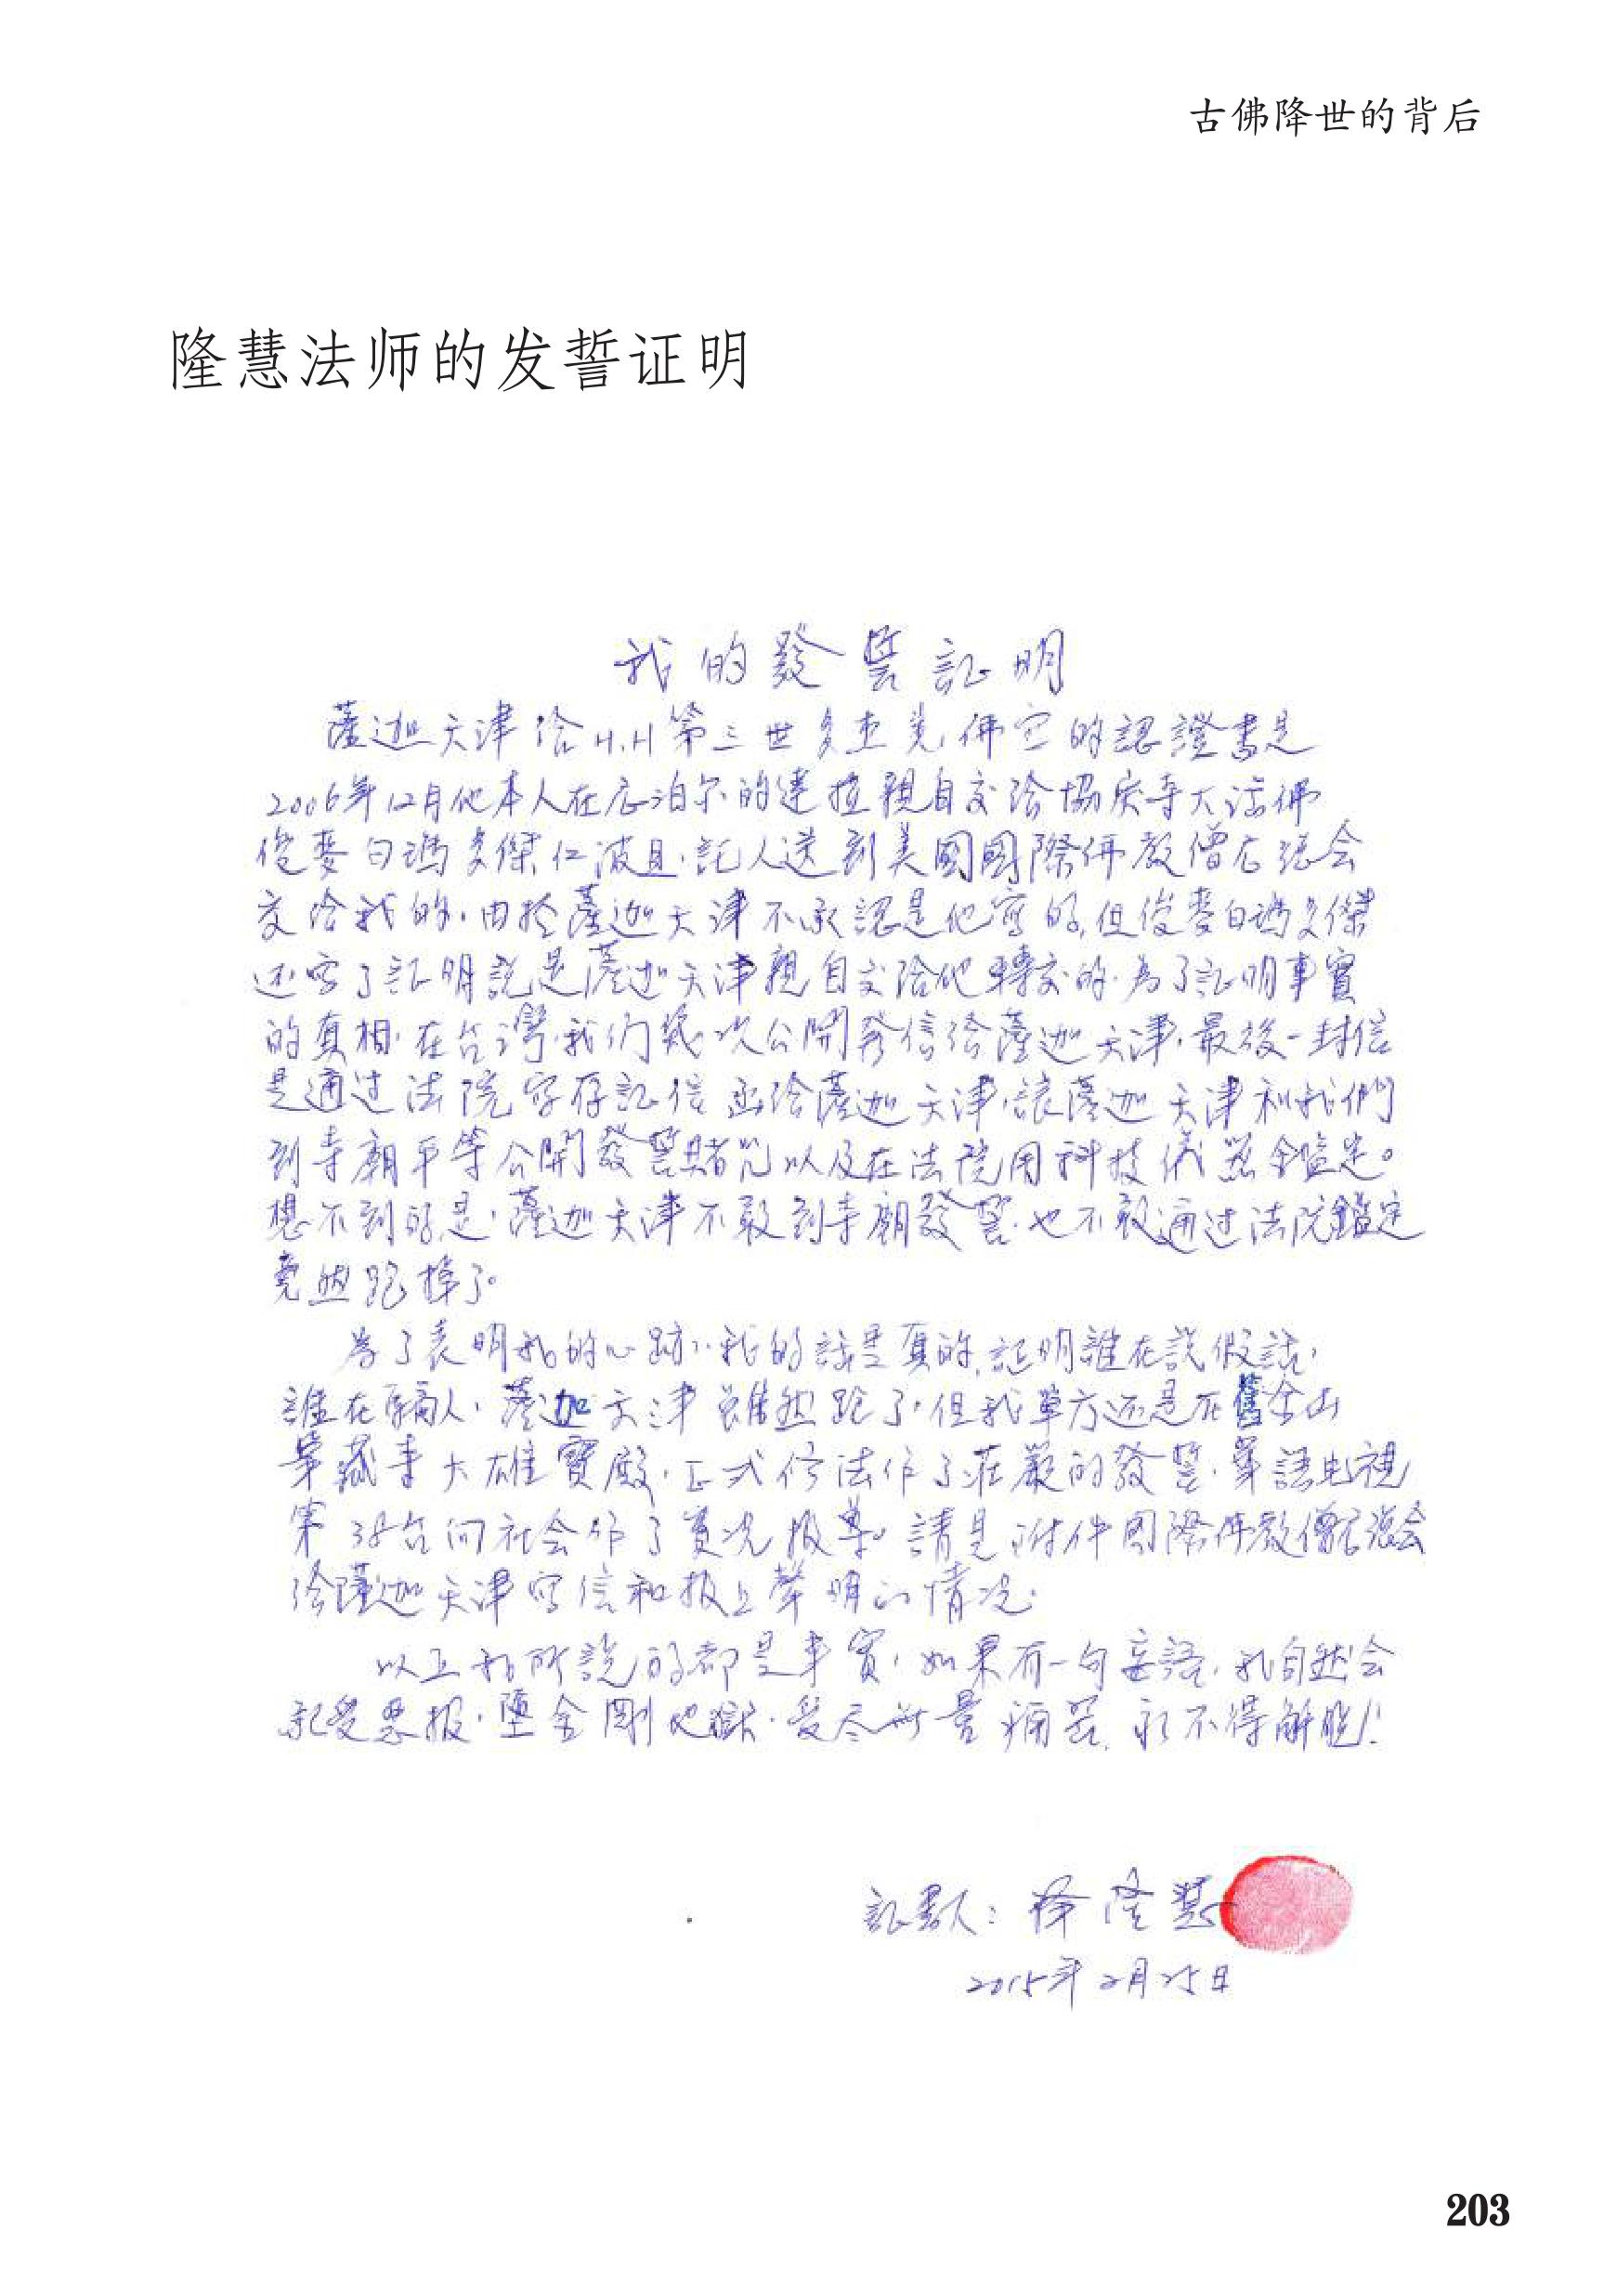 古佛降世的背后
隆慧法师的发誓证明
我的發誓証明
薩迦天津给H.H第三世多杰羌佛它的認證書是
2006年12月他本人在尼泊尔的達拉親自交给協庆寺大活佛
俊麥白瑪多傑仁波且，託人送到美國國際佛教僧尼總会
交给我的，由於薩迦天津不承認是他寫的，但俊麥白瑪多傑
还写了証明説是薩迦天津親自交给他轉交的，为了証明事實
的真相，在台灣，我们幾次公開發信给薩迦天津，最後一封信
是通过法院寄存証信函给薩迦天津，讓薩迦天津和我們
到寺廟平等公開發誓賭咒以及在法院用科技儀器鑑定。
想不到的是，薩迦天津不敢到寺廟發誓，也不敢通过法院鑑定
竟然跑掉了。
为了表明我的心跡，我的話是真的，証明誰在説假話，
誰在騙人，薩迦天津雖然跑了，但我單方还是在舊金山
華藏寺大雄寶殿，正式修法作了莊嚴的發誓，華語电視
第38台向社会作了實况报導。請見附件国際佛教僧尼總会
给薩迦天津写信和报上聲明的情况。
以上我所説的都是事實，如果有一句妄語，我自然会
承受惡报，墮金剛地獄，受尽无量痛苦，永不得解脱！
証書人：释隆慧
2015年2月25日
203